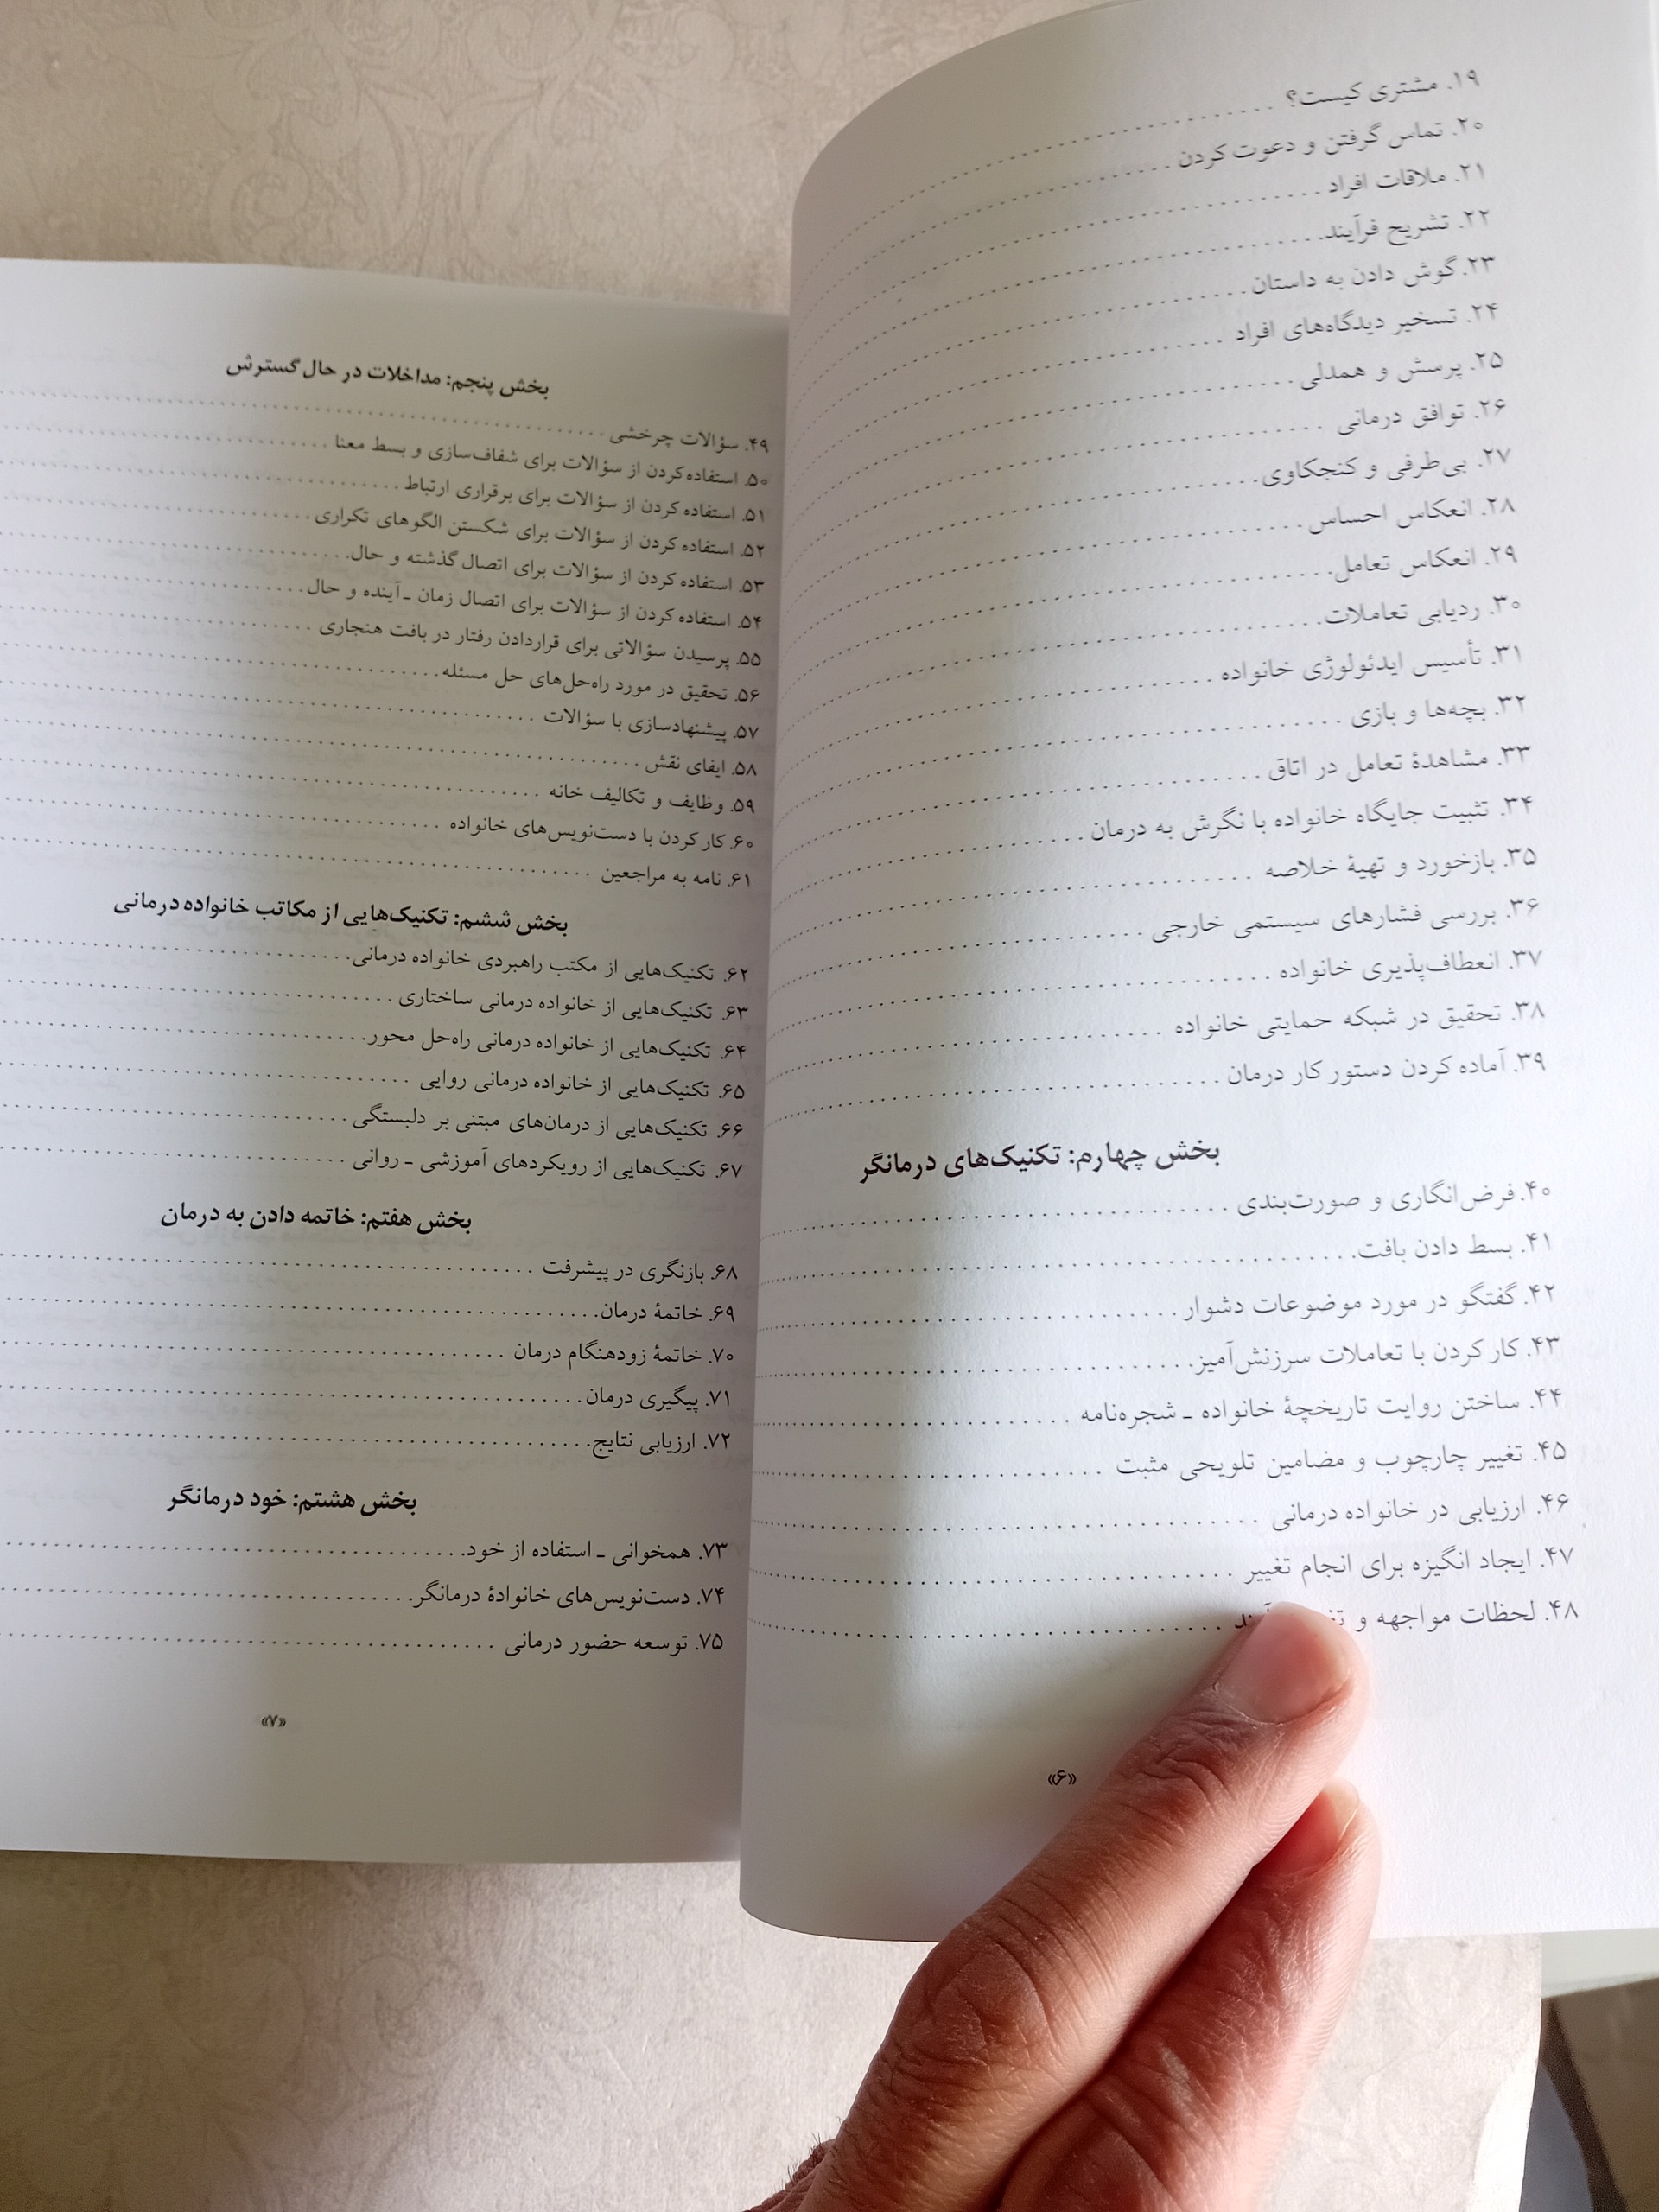 ۱۹. مشتری کیست؟
۲۰. تماس گرفتن و دعوت کردن
۲۱. ملاقات افراد
۲۲. تشریح فرآیند
۲۳. گوش دادن به داستان
۲۴. تسخیر دیدگاه‌های افراد
۲۵. پرسش و همدلی
۲۶. توافق درمانی
۲۷. بی‌طرفی و کنجکاوی
۲۸. انعکاس احساس
۲۹. انعکاس تعامل
۳۰. ردیابی تعاملات
۳۱. تأسیس ایدئولوژی خانواده
۳۲. بچه‌ها و بازی
۳۳. مشاهدۀ تعامل در اتاق
۳۴. تثبیت جایگاه خانواده با نگرش به درمان
۳۵. بازخورد و تهیۀ خلاصه
۳۶. بررسی فشارهای سیستمی خارجی
۳۷. انعطاف‌پذیری خانواده
۳۸. تحقیق در شبکه حمایتی خانواده
۳۹. آماده کردن دستور کار درمان
بخش چهارم: تکنیک‌های درمانگر
۴۰. فرض‌انگاری و صورت‌بندی
۴۱. بسط دادن بافت
۴۲. گفتگو در مورد موضوعات دشوار
۴۳. کار کردن با تعاملات سرزنش‌آمیز
۴۴. ساختن روایت تاریخچۀ خانواده ـ شجره‌نامه
۴۵. تغییر چارچوب و مضامین تلویحی مثبت
۴۶. ارزیابی در خانواده درمانی
۴۷. ایجاد انگیزه برای انجام تغییر
۴۸. لحظات مواجهه و
«۶»
بخش پنجم: مداخلات در حال گسترش
۴۹. سؤالات چرخشی
۵۰. استفاده‌کردن از سؤالات برای شفاف‌سازی و بسط معنا
۵۱. استفاده کردن از سؤالات برای برقراری ارتباط
۵۲. استفاده کردن از سؤالات برای شکستن الگوهای تکراری
۵۳. استفاده کردن از سؤالات برای اتصال گذشته و حال
۵۴. استفاده کردن از سؤالات برای اتصال زمان ـ آینده و حال
۵۵. پرسیدن سؤالاتی برای قراردادن رفتار در بافت هنجاری
۵۶. تحقیق در مورد راه‌حل‌های حل مسئله
۵۷. پیشنهادسازی با سؤالات
۵۸. ایفای نقش
۵۹. وظایف و تکالیف خانه
۶۰. کار کردن با دست‌نویس‌های خانواده
۶۱. نامه به مراجعین
بخش ششم: تکنیک‌هایی از مکاتب خانواده درمانی
۶۲. تکنیک‌هایی از مکتب راهبردی خانواده درمانی
۶۳. تکنیک‌هایی از خانواده درمانی ساختاری
۶۴. تکنیک‌هایی از خانواده درمانی راه‌حل محور
۶۵. تکنیک‌هایی از خانواده درمانی روایی
۶۶. تکنیک‌هایی از درمان‌های مبتنی بر دلبستگی
۶۷. تکنیک‌هایی از رویکردهای آموزشی ـ روانی
بخش هفتم: خاتمه دادن به درمان
۶۸. بازنگری در پیشرفت
۶۹. خاتمۀ درمان
۷۰. خاتمۀ زودهنگام درمان
۷۱. پیگیری درمان
۷۲. ارزیابی نتایج
بخش هشتم: خود درمانگر
۷۳. همخوانی ـ استفاده از خود
۷۴. دست‌نویس‌های خانوادۀ درمانگر
۷۵. توسعه حضور درمانی
«۷»